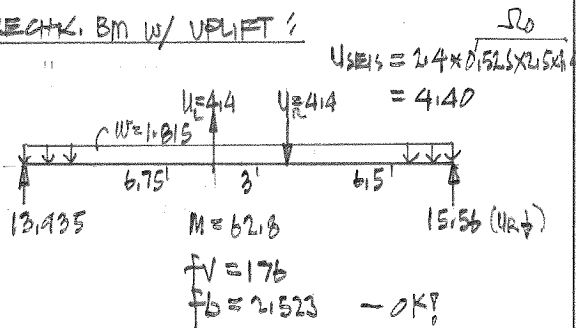 RECHK. BM W/ UPLIFT :
Ω0
USEIS = 2.4*0.525x2.5x1.4
= 4.40
UL=4.4 UR=4.4
W=1.815
6.75' 3' 6.5'
13.435 M = 62.8 15.56 (UR↓)
fV = 176
fb = 2.523 - OK!